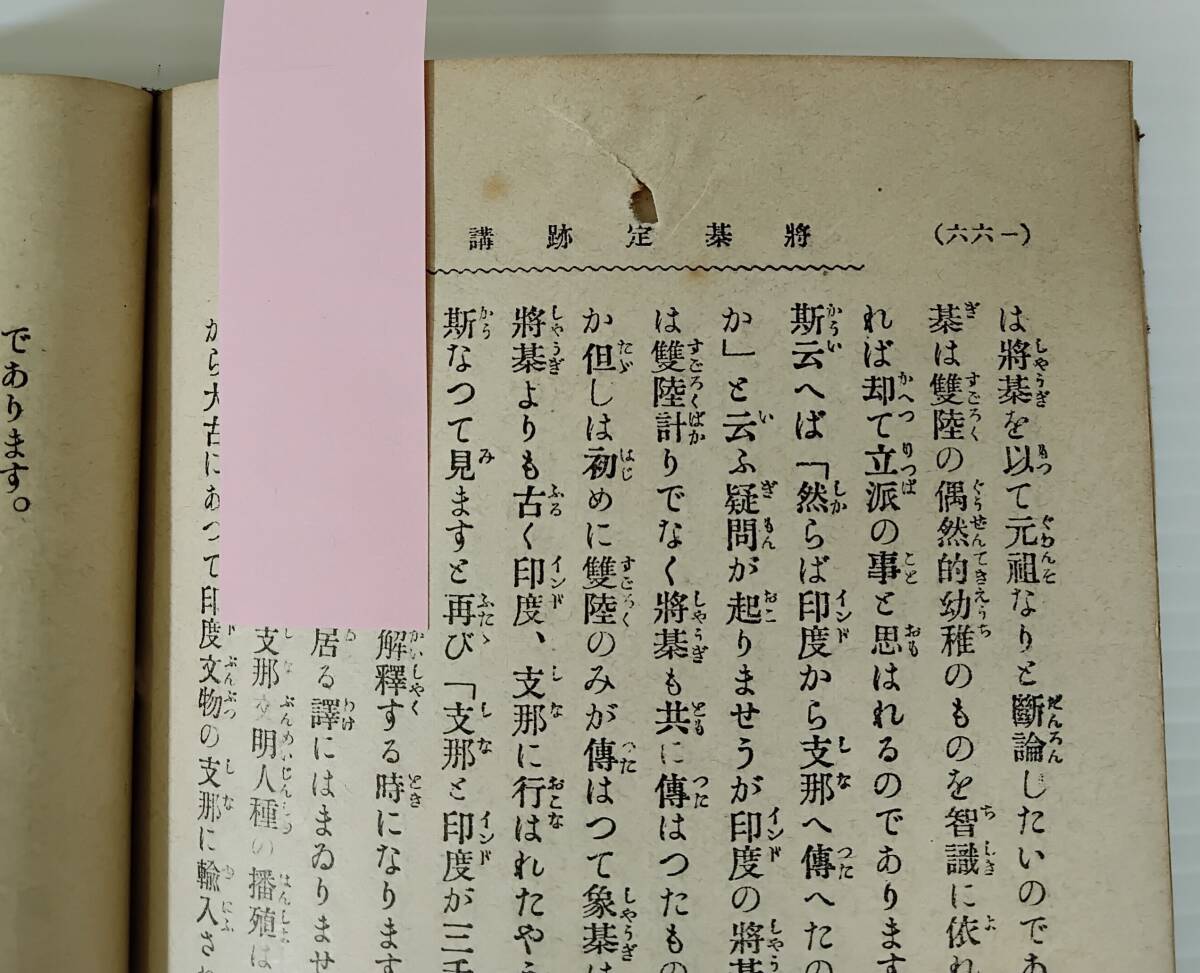 (一六六)
將棊定跡講
は將棊を以て元祖なりと斷論したいのであ
棊は雙陸の偶然的幼稚のものを智識に依れ
れば却て立派の事と思はれるのであります
斯云へば「然らば印度から支那へ傳へたの
か」と云ふ疑問が起りませうが印度の將棊
は雙陸計りでなく將棊も共に傳はつたもの
か但しは初めに雙陸のみが傳はつて象棊は
將棊よりも古く印度、支那に行はれたやう
斯なつて見ますと再び「支那と印度が三千
解釋する時になります
居る譯にはまゐりませ
支那文明人種の播殖は
から太古にあつて印度文物の支那に輸入され
であります。